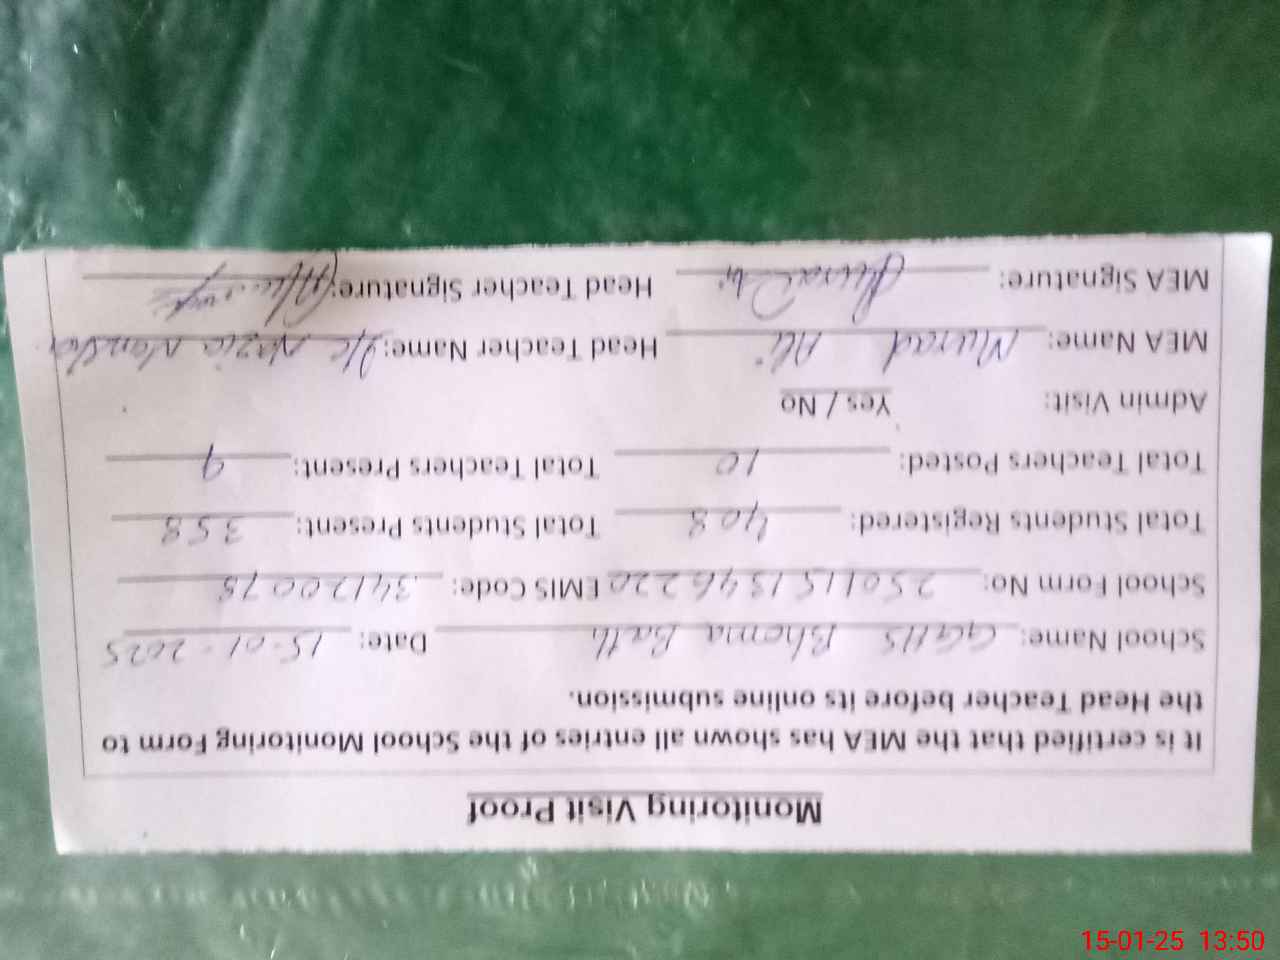 Monitoring Visit Proof
It is certified that the MEA has shown all entries of the School Monitoring Form to
the Head Teacher before its online submission.
School Name: GGHS Bhoma Bath Date: 15-01-2025
School Form No: 2501151346220 EMIS Code: 34120078
Total Students Registered: 408 Total Students Present: 358
Total Teachers Posted: 10 Total Teachers Present: 9
Admin Visit: Yes / No
MEA Name: Murad Ali Head Teacher Name: I/C Nazia
MEA Signature: Head Teacher Signature:
15-01-25 13:50